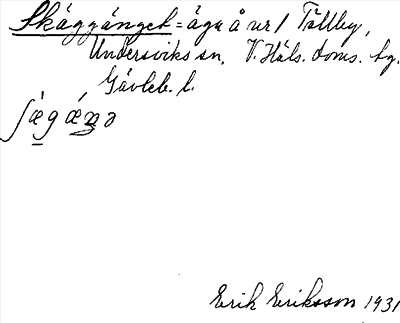 Skäggänget = ägu å nr 1 Tällby,
Undersviks sn, V. Häls. doms. sg.
Gävleb. l.
Erik Eriksson 1931